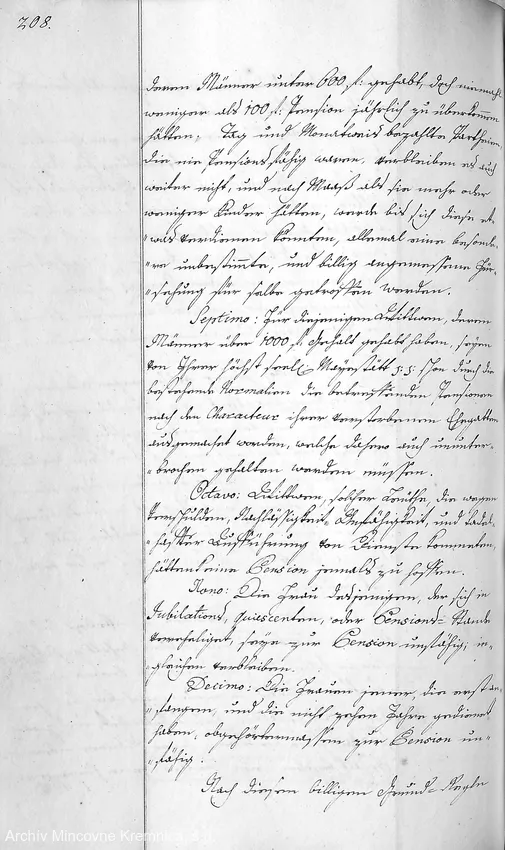 208.
deren Männer unter 600 f: gehabt, doch niemahls
weniger als 100 f: Pension jährlich zu überkommen
hätten; Tag und Monatweis bezahlte Partheien,
die nie Pensions fähig waren, verbleiben es auch
weiter nicht, und nach Maaß als sie mehr oder
weniger Kinder hätten, werde bis sich diese et-
"was verdienen könnten, allemal eine besonde-
"re unbestimmte, und billig angemessene Für-
"sehung für selbe getroffen werden.
Septimo: Für diejenigen Wittwen, deren
Männer über 1000 f: Gehalt gehabt haben, seyen
von Ihrer höchst seel: Mayestätt schon durch die
bestehende Normalien die betreffenden Pensionen
nach den Characteur ihrer verstorbenen Ehegatten
ausgemachet worden, welche dahero auch ununter-
"brochen gehalten werden müssen.
Octavo: Wittwen, solcher Leuthe, die wegen
Verschulden, Nachlässigkeit, Unfähigkeit, und tadel-
"hafter Aufführung von Dienste kommeten,
hätten keine Pension jemals zu hoffen.
Nono: Die Frau desjenigen, der sich in
Jubilations, quiescenten, oder Pensions=Stande
verehliget, seye zur Pension unfähig; in-
"gleichen verbleiben.
Decimo: Die Frauen jener, die erst an-
"fangen, und die nicht zehen Jahre gedienet
haben, obgehörtermassen zur Pension un-
"fähig.
Nach diesen billigen Grund=Regle
Archív Mincovne Kremnica